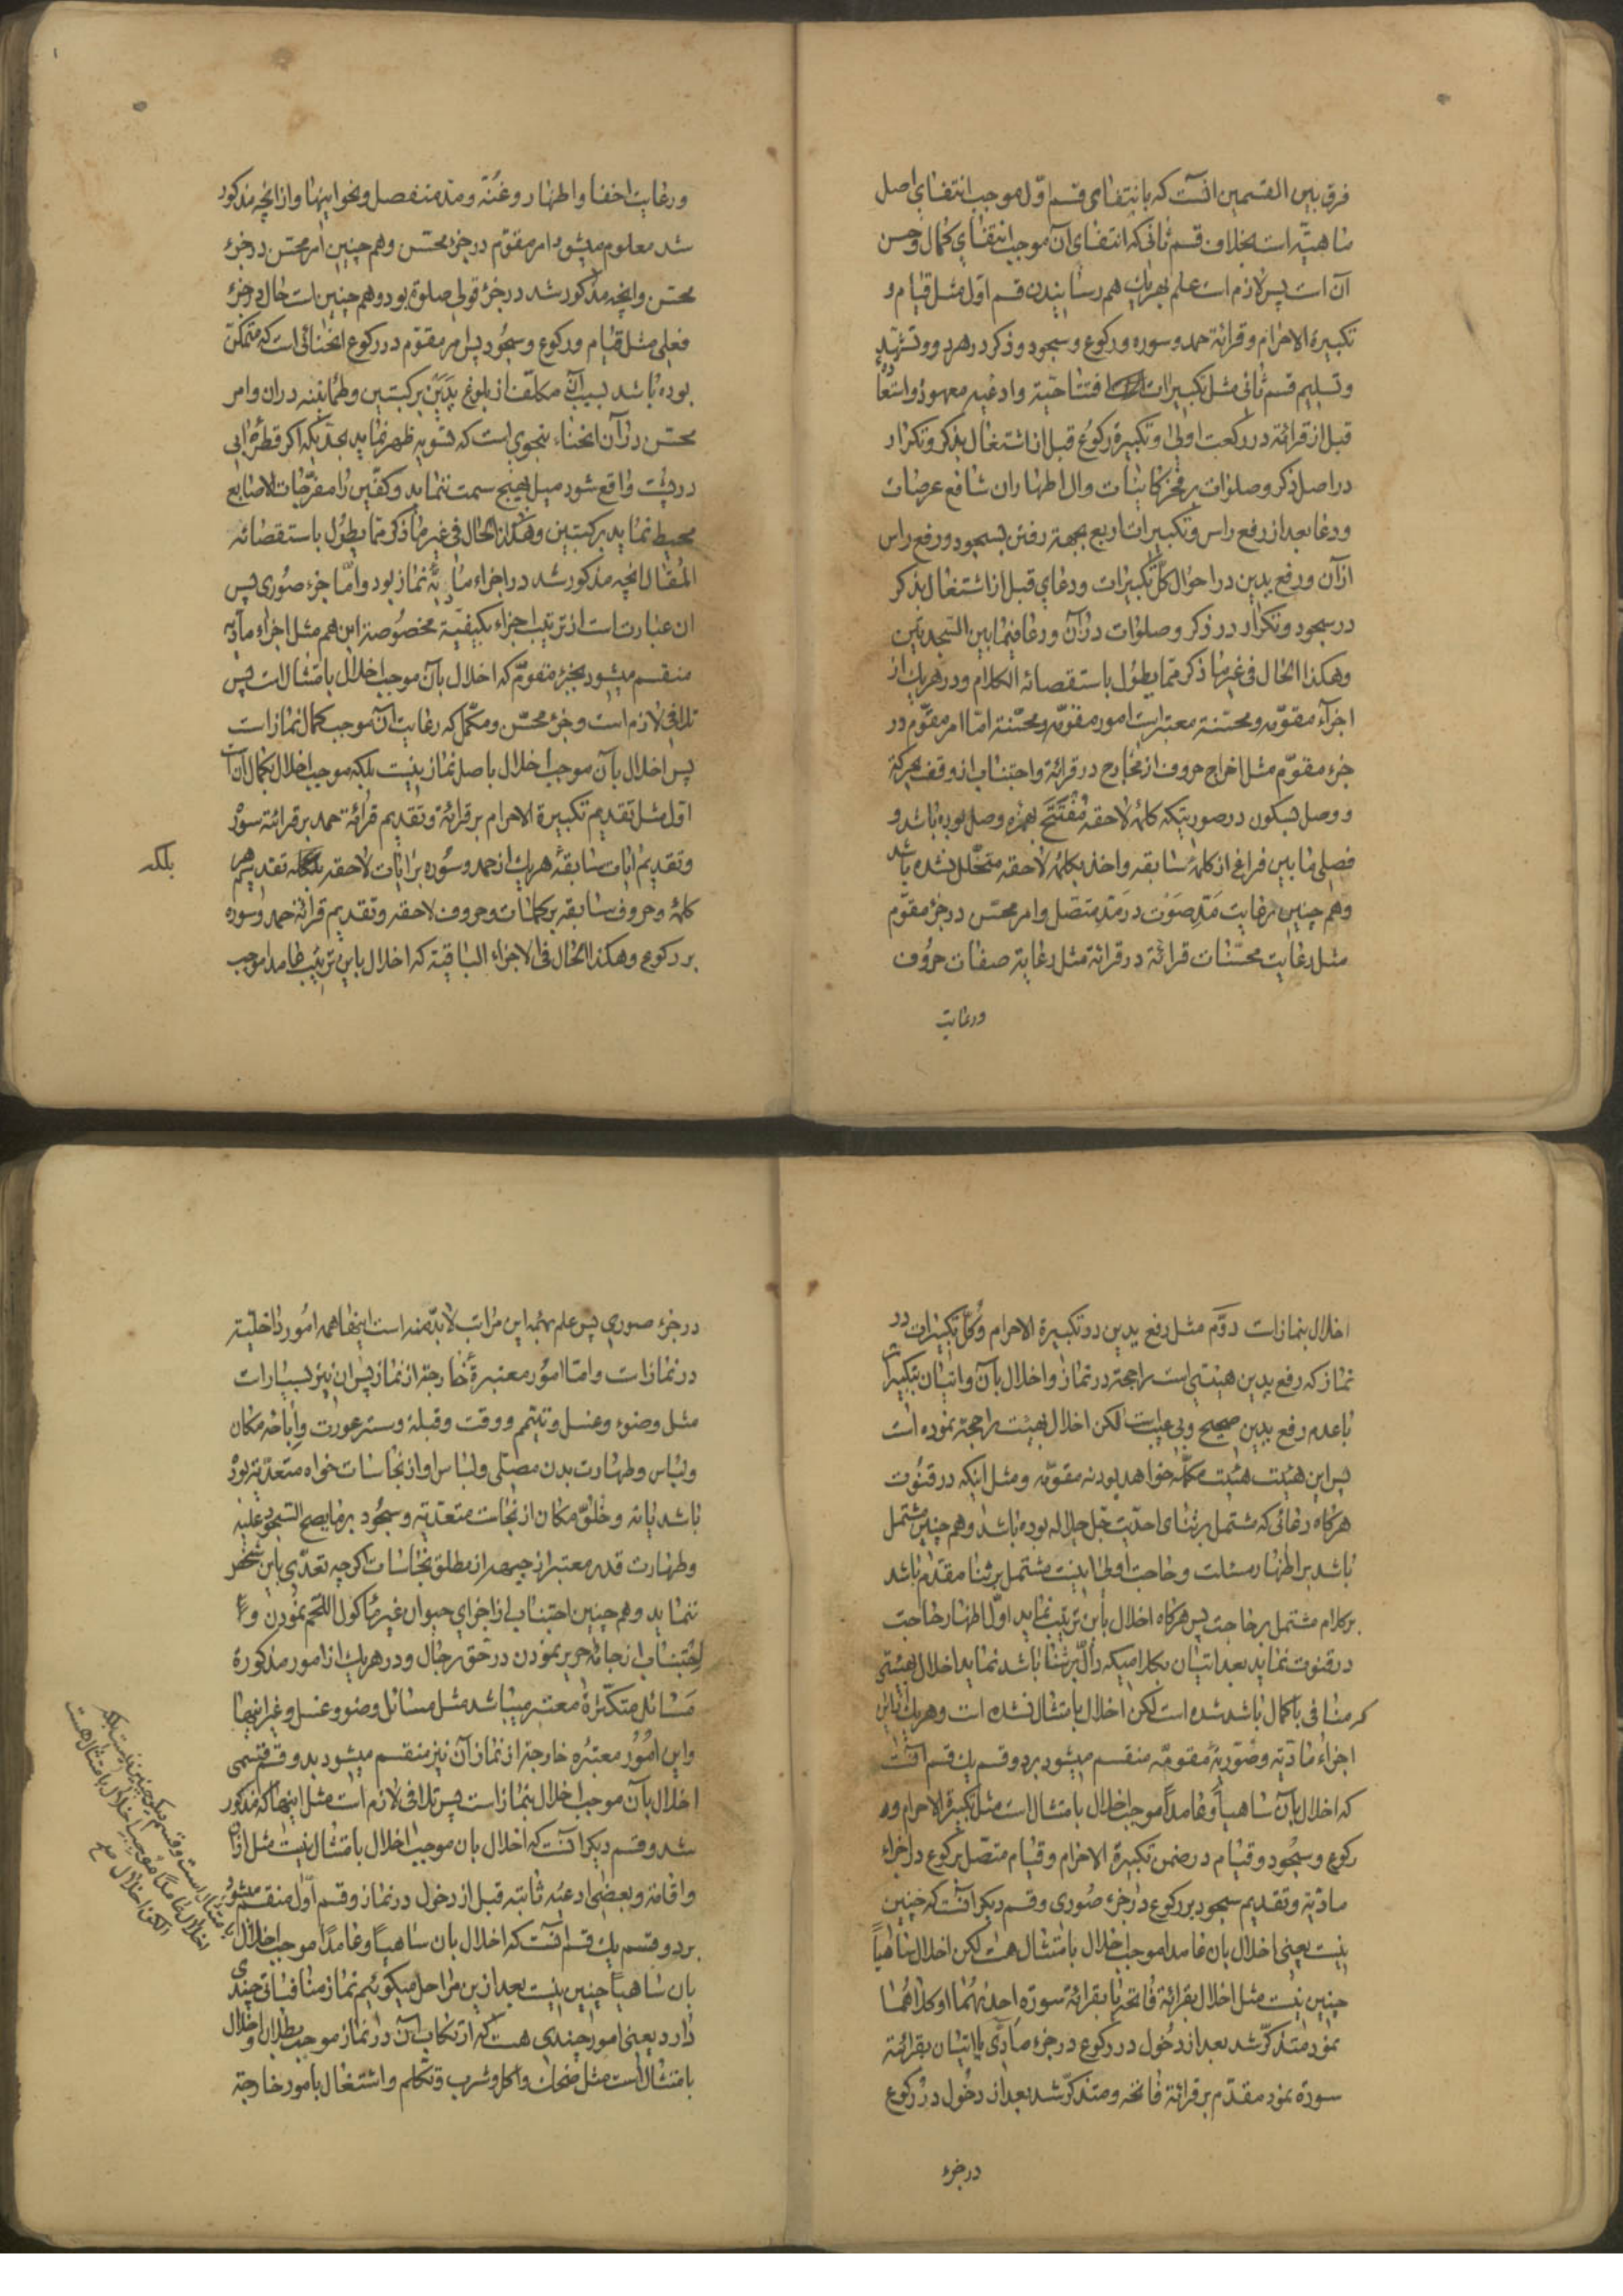 فرق بین القسمین آنست که بانتفای قسم اوّل موجب انتفای اصل
ماهیّة است بخلاف قسم ثانی که انتفای آن موجب انتفای کمال و حسن
آن است پس لازم است علم بهریک هم رسانیدن قسم اوّل مثل قیام و
تکبیرة الاحرام و قرائة حمد و سوره و رکوع و سجود و ذکر در هر دو و تشهّد
و تسلیم قسم ثانی مثل تکبیرات افتتاحیّة و ادعیه معهوده و استعاذه
قبل از قرائة در رکعت اولی و تکبیرة رکوع قبل از اشتغال بذکر و تکرار
در اصل ذکر و صلوات بر مفخر کاینات و ال اطهار ان شافع عرصات
و دعا بعد از رفع راس و تکبیرات اربع بجهة رفتن بسجود و رفع راس
از آن و رفع یدین در احوال کلّ تکبیرات و دعای قبل از اشتغال بذکر
در سجود و تکرار در ذکر و صلوات در آن و دعا فیما بین السّجدتین
و هکذا الحال فی غیر ما ذکر ممّا یطول باستقصائه الکلام و در هریک از
اجزآء مقوّمه و محسّنة معتبر است امور مقوّمه و محسّنة امّا امر مقوّم در
جزء مقوّم مثل اخراج حروف از مخارج در قرائة و اجتناب از وقف بحرکة
و وصل بسکون در صورتیکه کلمهٔ لاحقه مُفْتَتَح بهمزه وصل بوده باشد و
فصلی ما بین فراغ از کلمهٔ سابقه و اخذ بکلمهٔ لاحقه متخلّل نشده باشد
و هم چنین رعایت مَدِّ صَوْت در مَدِّ متّصل و امر محسّن در جزء مقوّم
مثل رعایت محسّنات قرائة در قرائة مثل رعایة صفات حروف
و رعایت
و رعایت اخفا و اظهار و غُنّه و مدّ منفصل و نحو اینها و از آنچه مذکور
شد معلوم میشود امر مقوّم در جزء محسّن و هم چنین امر محسّن در جزء
محسّن و آنچه مذکور شد در جزء قولی صلوة بود و هم چنین است حال در جزء
فعلی مثل قیام و رکوع و سجود پس امر مقوّم در رکوع انحنائی است که متمکّن
بوده باشد بسبب آن مکلّف از بلوغ یدین برکبتین و طمأنینه در آن و امر
محسّن در آن انحناء بنحوی است که تسویه ظهر نماید بحدّیکه اکر قطرهٔ ابی
در پشت واقع شود میل بهیچ سمت ننماید و کفّین را مفرّجات الاصابع
محیط نماید برکبتین و هکذا الحال فی غیر ما ذکر ممّا یطول باستقصائه
المقال آنچه مذکور شد در اجزاء مادّیّه نماز بود و امّا جزء صُوری پس
ان عبارت است از ترتیب اجزاء بکیفیّة مخصُوصه این هم مثل اجزاء مادّیه
منقسم میشود بجزء مقوّم که اخلال بآن موجب اخلال بامتثال است پس
تلافی لازم است و جزء محسّن و مکمّل که رعایت آن موجب کمال نماز است
پس اخلال بآن موجب اخلال باصل نماز نیست بلکه موجب اخلال بکمال آن است
اوّل مثل تقدیم تکبیرة الاحرام بر قرائة و تقدیم قرائة حمد بر قرائة سوره
و تقدیم ایات سابقه هریک از حمد و سُوره بر ایات لاحقه بلکه تقدیم هر
بلکه
کلمهٔ و حروف سابقه بر کلمات و حروف لاحقه و تقدیم قرائة حمد و سوره
بر رکوع و هکذا الحال فی الاجزاء الباقیة که اخلال باین ترتیب عامدا موجب
اخلال بنماز است دوّم مثل رفع یدین در تکبیرة الاحرام و کلّ تکبیرات در
نماز که رفع یدین هیئتی است راجحة در نماز و اخلال بآن و اتیان بتکبیرات
با عدم رفع یدین صحیح و بی عیب است لکن اخلال بهیئت راجحة نموده است
پس این هیئت هیئت مکمّله خواهد بود نه مقوّمه و مثل اینکه در قنوت
هرکاه دعائی که مشتمل بر ثنای احدّیت جلّ جلاله بوده باشد و هم چنین مشتمل
باشد بر اظهار مسئلت و حاجت اولی اینست مشتمل بر ثنا مقدّم باشد
بر کلام مشتمل بر حاجت پس هرکاه اخلال باین ترتیب نماید اوّلا اظهار حاجت
در قنوت نماید بعد اتیان بکلامیکه دالّ بر ثنا باشد نماید اخلال بهیئتی
که منافی با کمال باشد شده است لکن اخلال بامتثال نشده است و هریک از این
اجزاء مادّیّه و صوریّه مقومّه منقسم میشود بر دو قسم یک قسم آنست
که اخلال بآن ساهیاً و عامداً موجب اخلال بامتثال است مثل تکبیرة الاحرام و
رکوع و سجود و قیام در ضمن تکبیرة الاحرام و قیام متّصل برکوع در اجزاء
مادّیّه و تقدیم سجود بر رکوع در جزء صُوری و قسم دیکر آنست که چنین
نیست یعنی اخلال بان عامدا موجب اخلال بامتثال هست لکن اخلال ساهیاً
چنین نیست مثل اخلال بقرائة فاتحه یا بقرائة سوره احدیهما او کلاهما
نمود متذکّر شد بعد از دخول در رکوع در جزء مادّی یا اتیان بقرائة
سورة نمود مقدّم بر قرائة فاتحه و متذکّر شد بعد از دخول در رکوع
در جزء
در جزء صوری پس علم بهمه این مراتب لابدّ منه است اینها همه امور داخلیّة
در نماز است و امّا امور معتبرة خارجة از نماز پس ان نیز بسیار است
مثل وضوء و غسل و تیمّم و وقت و قبله و ستر عورت و اباحه مکان
و لباس و طهارت بدن مصلّی و لباس او از نجاسات خواه متعدّیة بوده
باشد یا نه و خلوّ مکان از نجاست متعدّیة و سجود بر ما یصح السّجود علیه
و طهارت قدر معتبر از جبهه از مطلق نجاسات اکرچه تعدّی باین شخص
ننماید و هم چنین اجتناب از اجزای حیوان غیر ماکول اللّحم نمودن و
اجتناب از جامهٔ حریر نمودن در حق رجال و در هریک از امور مذکورة
مَسائل متکثرة معتبر میباشد مثل مسائل وضو و غسل و غیر اینها
و این امُور معتبره خارجة از نماز آن نیز منقسم میشود بدو قسم قسمی
اخلال بآن موجب اخلال بنماز است پس تلافی لازم است مثل اینها که مذکور
شد و قسم دیکر آنست که اخلال بان موجب اخلال بامتثال نیست مثل اذان
و اقامة و بعضی ادعیه ثابته قبل از دخول در نماز و قسم اوّل منقسم میشود
بر دو قسم یک قسم آنست که اخلال بان ساهیاً و عامداً موجب اخلال
بامتثال است و قسم دیکر چنین نیست بلکه
اخلال عامداً موجب اخلال بامتثال هست
لکن اخلال صح
بان ساهیاً چنین نیست بعد از این مراحل میکوئیم نماز منافیات چندی
دارد یعنی امور چندی هست که ارتکاب آن در نماز موجب بطلان و اخلال
بامتثال است مثل ضحک و اکل و شرب و تکلم و اشتغال بامور خارجة